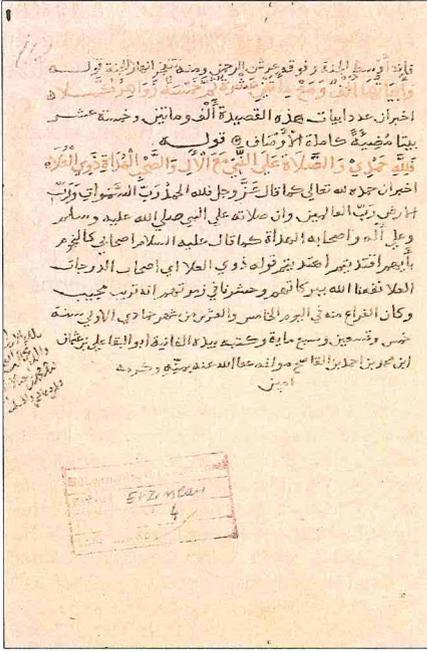 فإنه أوسط الجنة وفوقه عرش الرحمن ومنه تفجر انهار الجنة قوله
وأبياتها ألف ومع مائتين عشرة مع خمسة زواهر
اخبران عدد ابيات هذه القصيدة ألف وماتين وخمسة عشر
بيتا مضيئة كاملة الأوصاف قوله
فلله حمدي والصلاة على النبي مع الآل والصحب الهداة ذوي العلا
اخبران حمده لله تعالى كما قال عز وجل فلله الحمد رب السموات ورب
الارض رب العالمين وان صلاته على النبي صلى الله عليه وسلم
وعلى آله واصحابه الهداة كما قال عليه السلام اصحابي كالنجوم
بأيهم اقتديتم اهتديتم قوله ذوي العلا اي اصحاب الدرجات
العلا نفعنا الله ببركاتهم وحشرنا في زمرتهم انه قريب مجيب
وكان الفراغ منه في اليوم الخامس والعشرين من شهر جمادي الاولى سنة
خمس وتسعين وسبع ماية وكتبه بيده الفانية ابو البقا علي بن عثمان
ابن محمد بن احمد بن القاصح مولفه عفا الله عنه بمنه وكرمه
امين
Erzincan
4